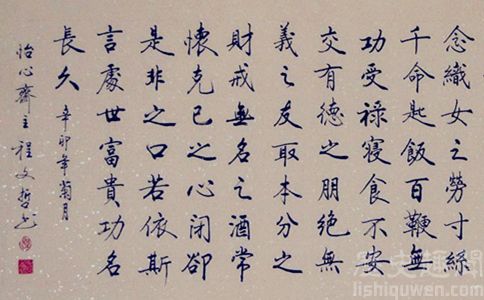 念織女之勞寸絲
千命匙飯百鞭無
功受禄寢食不安
交有德之朋絕無
義之友取本分之
財戒無名之酒常
懷克己之心閉卻
是非之口若依斯
言處世富貴功名
長久 辛卯年菊月
怡心齋主程文哲书
历史趣闻
lishiquwen.com